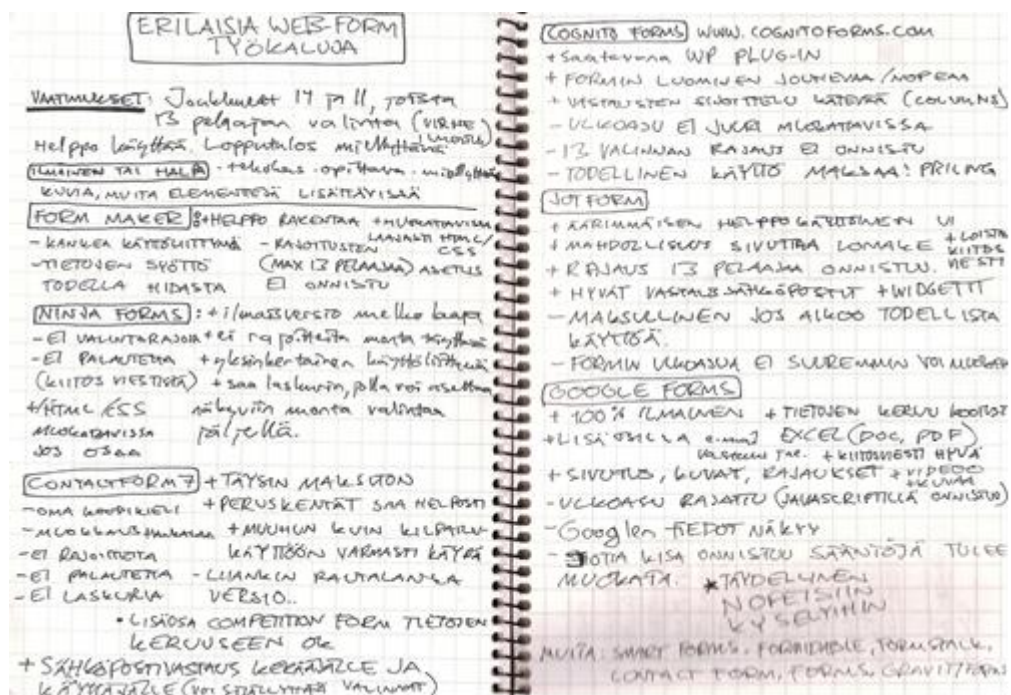 ERILAISIA WEB-FORM
TYÖKALUJA
VAATIMUKSET: Joukkueet 17 ja 11, joista
13 pelaajan valinta (VIRHE)
Helppo käyttää. Lopputulos miellyttävä
ILMAINEN TAI HALPA - tehokas - opittava - miellyttävä
KUVIA, MUITA ELEMENTTEJÄ LISÄTTÄVISSÄ
FORM MAKER: + HELPPO RAKENTAA + MUOKATTAVISSA
LAAJASTI HTML/
CSS
- KANKEA KÄYTTÖLIITTYMÄ - RAJOITUSTEN
- TIETOJEN SYÖTTÖ (MAX 13 PELAAJAA) ASETUS
TODELLA HIDASTA EI ONNISTU
NINJA FORMS: + ilmaisversio melko laaja
- EI VALINTARAJOJA + ei rajoitteita monta
- EI PALAUTETTA + yksinkertainen käyttöliittymä
(KIITOS VIESTISTÄ) + saa laskurin, jolla voi asettaa
+/HTML/CSS näkyviin monta valintaa
MUOKATTAVISSA jäljellä.
JOS OSAA
CONTACTFORM7 + TÄYSIN MAKSUTON
- OMA KOODIKIELI + PERUSKENTÄT SAA HELPOSTI
- MUOKKAUS HANKALAA + MUUHUN KUIN KILPAILU-
- EI RAJOITTEITA KÄYTTÖÖN VARMASTI KÄYPÄ
- EI PALAUTETTA - RAUTALANKA
- EI LASKURIA VERSIO..
• LISÄOSA COMPETITION FORM TIETOJEN
KERUUSEEN OK
+ SÄHKÖPOSTIVASTAUS KERÄÄJÄLLE JA
KÄYTTÄJÄLLE (VOI SISÄLLYTTÄÄ VALINNAT)
COGNITO FORMS WWW.COGNITOFORMS.COM
+ Saatavana WP PLUG-IN
+ FORMIN LUOMINEN JOUHEVAA/NOPEAA
+ VASTAUSTEN SIJOITTELU KÄTEVÄÄ (COLUMNS)
- ULKOASU EI JUURI MUOKATTAVISSA
- 13 VALINNAN RAJAUS EI ONNISTU
- TODELLINEN KÄYTTÖ MAKSAA: PRICING
JOTFORM
+ ÄÄRIMMÄISEN HELPPOKÄYTTÖINEN UI
+ MAHDOLLISUUS SIVUTTAA LOMAKE + LOISTA
KIITOS
VIESTI
+ RAJAUS 13 PELAAJAA ONNISTUU.
+ HYVÄT VASTAUSSÄHKÖPOSTIT + WIDGETIT
- MAKSULLINEN JOS ALKOO TODELLISTA
KÄYTTÖÄ.
- FORMIN ULKOASUA EI SUUREMMIN VOI MUOKATA
GOOGLE FORMS
+ 100% ILMAINEN + TIETOJEN KERUU
+ LISÄOSILLA email EXCEL (DOC, PDF)
+ KIITOSVIESTI HYVÄ
+ SIVUTUS, KUVAT, RAJAUKSET + VIDEOO
+ KUVAA
- ULKOASU RAJATTU (JAVASCRIPTILLÄ ONNISTUU)
- Googlen TIEDOT NÄKYY
- JOTTA KISA ONNISTUU SÄÄNTÖJÄ TULEE
MUOKATA. * TÄYDELLINEN
NOPEISIIN
KYSELYIHIN
MUITA: SMART FORMS, FORMIDABLE, FORMSTACK,
CONTACT FORM, FORMS, GRAVITYFORM